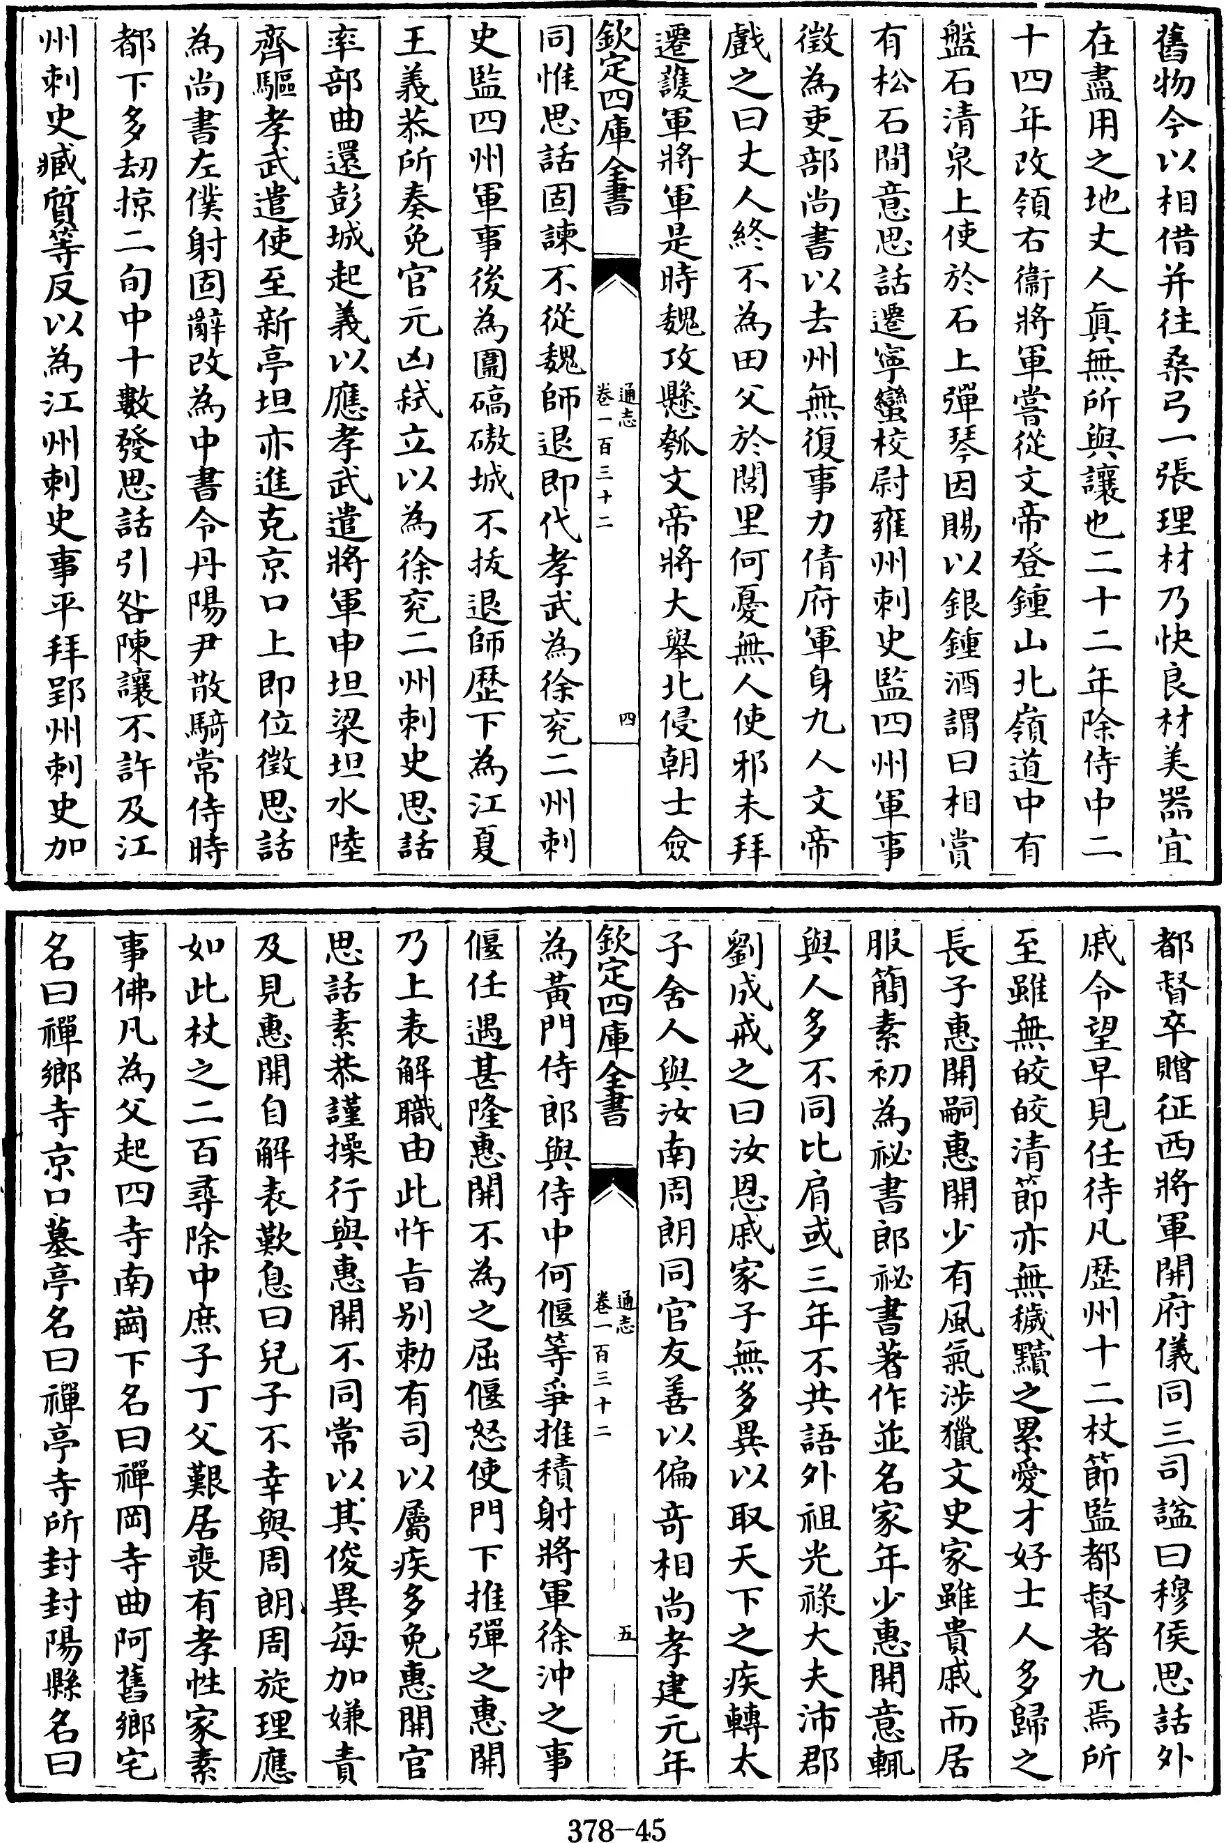 舊物今以相借并往桑弓一張理材乃快良材美器宜
在盡用之地丈人眞無所與讓也二十二年除侍中二
十四年改領右衞將軍嘗從文帝登鍾山北嶺道中有
盤石清泉上使於石上彈琴因賜以銀鍾酒謂曰相賞
有松石間意思話遷寧蠻校尉雍州刺史監四州軍事
徵為吏部尚書以去州無復事力倩府軍身九人文帝
戲之曰丈人終不為田父於閭里何憂無人使邪未拜
遷護軍將軍是時魏攻懸瓠文帝將大舉北侵朝士僉
欽定四庫全書
通志
卷一百三十二
四
同惟思話固諫不從魏師退即代孝武為徐兖二州刺
史監四州軍事後為圍碻磝城不拔退師歴下為江夏
王義恭所奏免官元凶弑立以為徐兖二州刺史思話
率部曲還彭城起義以應孝武遣將軍申坦梁坦水陸
齊驅孝武遣使至新亭坦亦進克京口上即位徵思話
為尚書左僕射固辭改為中書令丹陽尹散騎常侍時
都下多刼掠二旬中十數發思話引咎陳讓不許及江
州刺史臧質等反以為江州刺史事平拜郢州刺史加
都督卒贈征西將軍開府儀同三司諡曰穆侯思話外
戚令望早見任待凡歴州十二杖節監都督者九焉所
至雖無皎皎清節亦無穢黷之累愛才好士人多歸之
長子惠開嗣惠開少有風氣涉獵文史家雖貴戚而居
服簡素初為祕書郎祕書著作並名家年少惠開意輒
與人多不同比肩或三年不共語外祖光祿大夫沛郡
劉成戒之曰汝恩戚家子無多異以取天下之疾轉太
子舍人與汝南周朗同官友善以偏奇相尚孝建元年
欽定四庫全書
通志
卷一百三十二
五
為黃門侍郎與侍中何偃等爭推積射將軍徐沖之事
偃任遇甚隆惠開不為之屈偃怒使門下推彈之惠開
乃上表解職由此忤旨别勅有司以屬疾多免惠開官
思話素恭謹操行與惠開不同常以其俊異每加嫌責
及見惠開自解表歎息曰兒子不幸與周朗周旋理應
如此杖之二百尋除中庶子丁父艱居喪有孝性家素
事佛凡為父起四寺南崗下名曰禪岡寺曲阿舊鄉宅
名曰禪鄉寺京口墓亭名曰禪亭寺所封封陽縣名曰
378-45